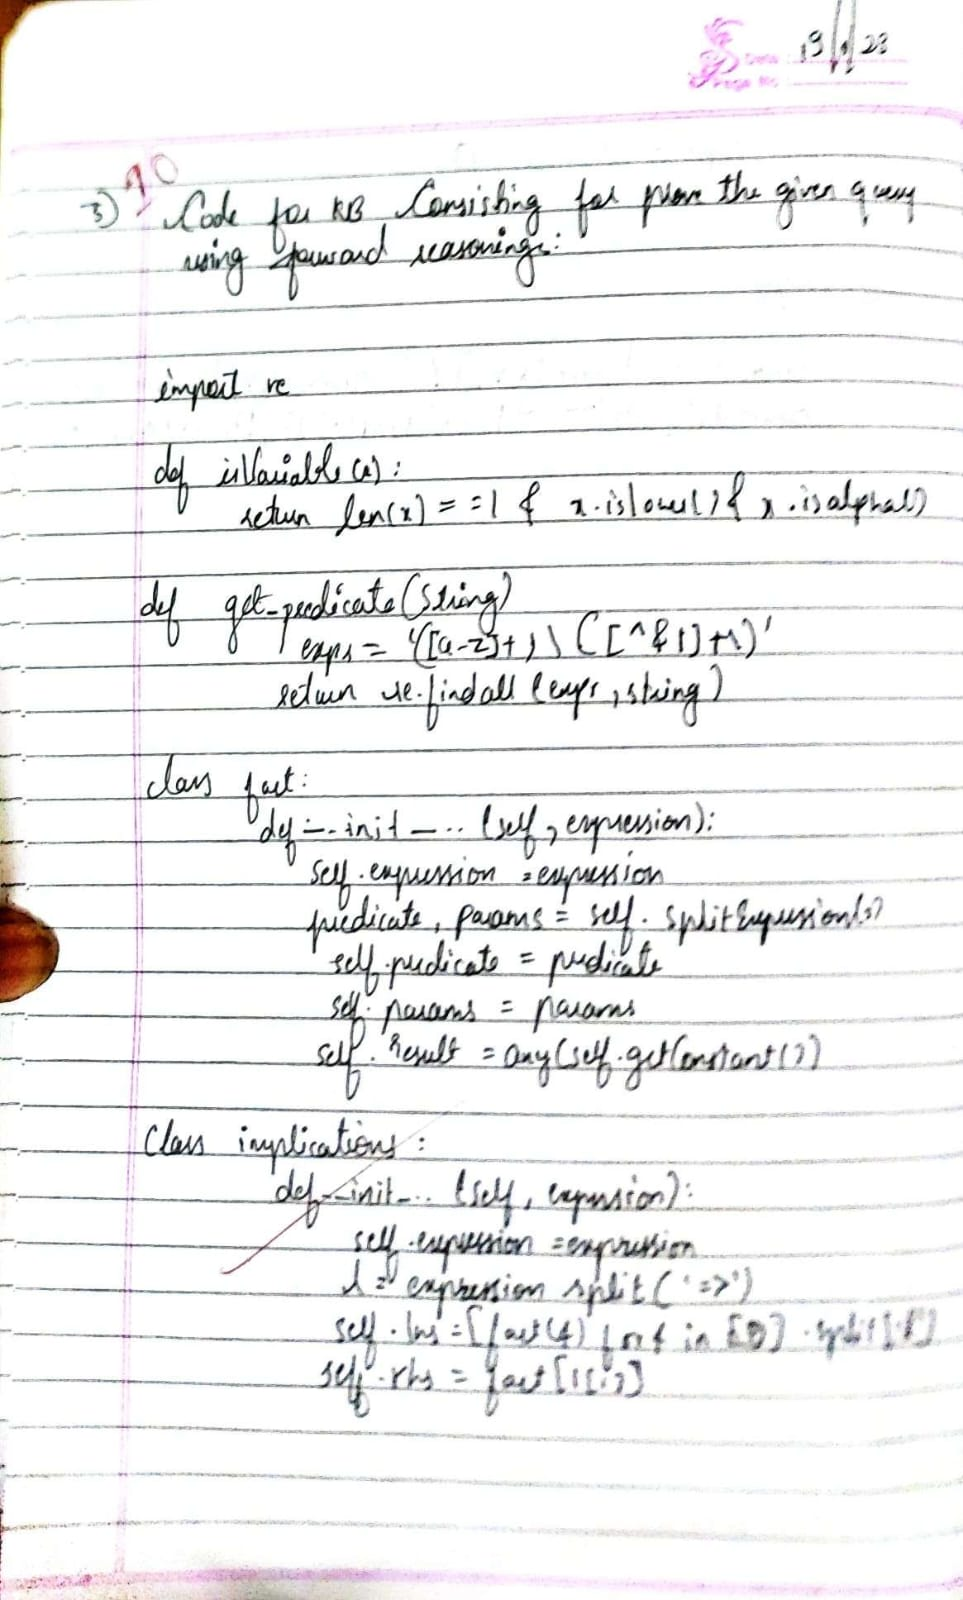 Date 19/1/23
Page No
10
3) Code for KB Consisting for prove the given query
using forward reasoning:
import re
def isVariable(x):
return len(x) == 1 & x.islower() & x.isalpha()
def get_predicate(string)
expr = '([a-z]+)\([^&|]+\)'
return re.findall(expr, string)
class fact:
def __init__(self, expression):
self.expression = expression
predicate, params = self.splitExpression()
self.predicate = predicate
self.params = params
self.result = any(self.getConstant())
Class implications:
def __init__(self, expression):
self.expression = expression
l = expression split('=>')
self.lhs = [fact(f) for f in [0].split('&')]
self.rhs = fact[1[i]]